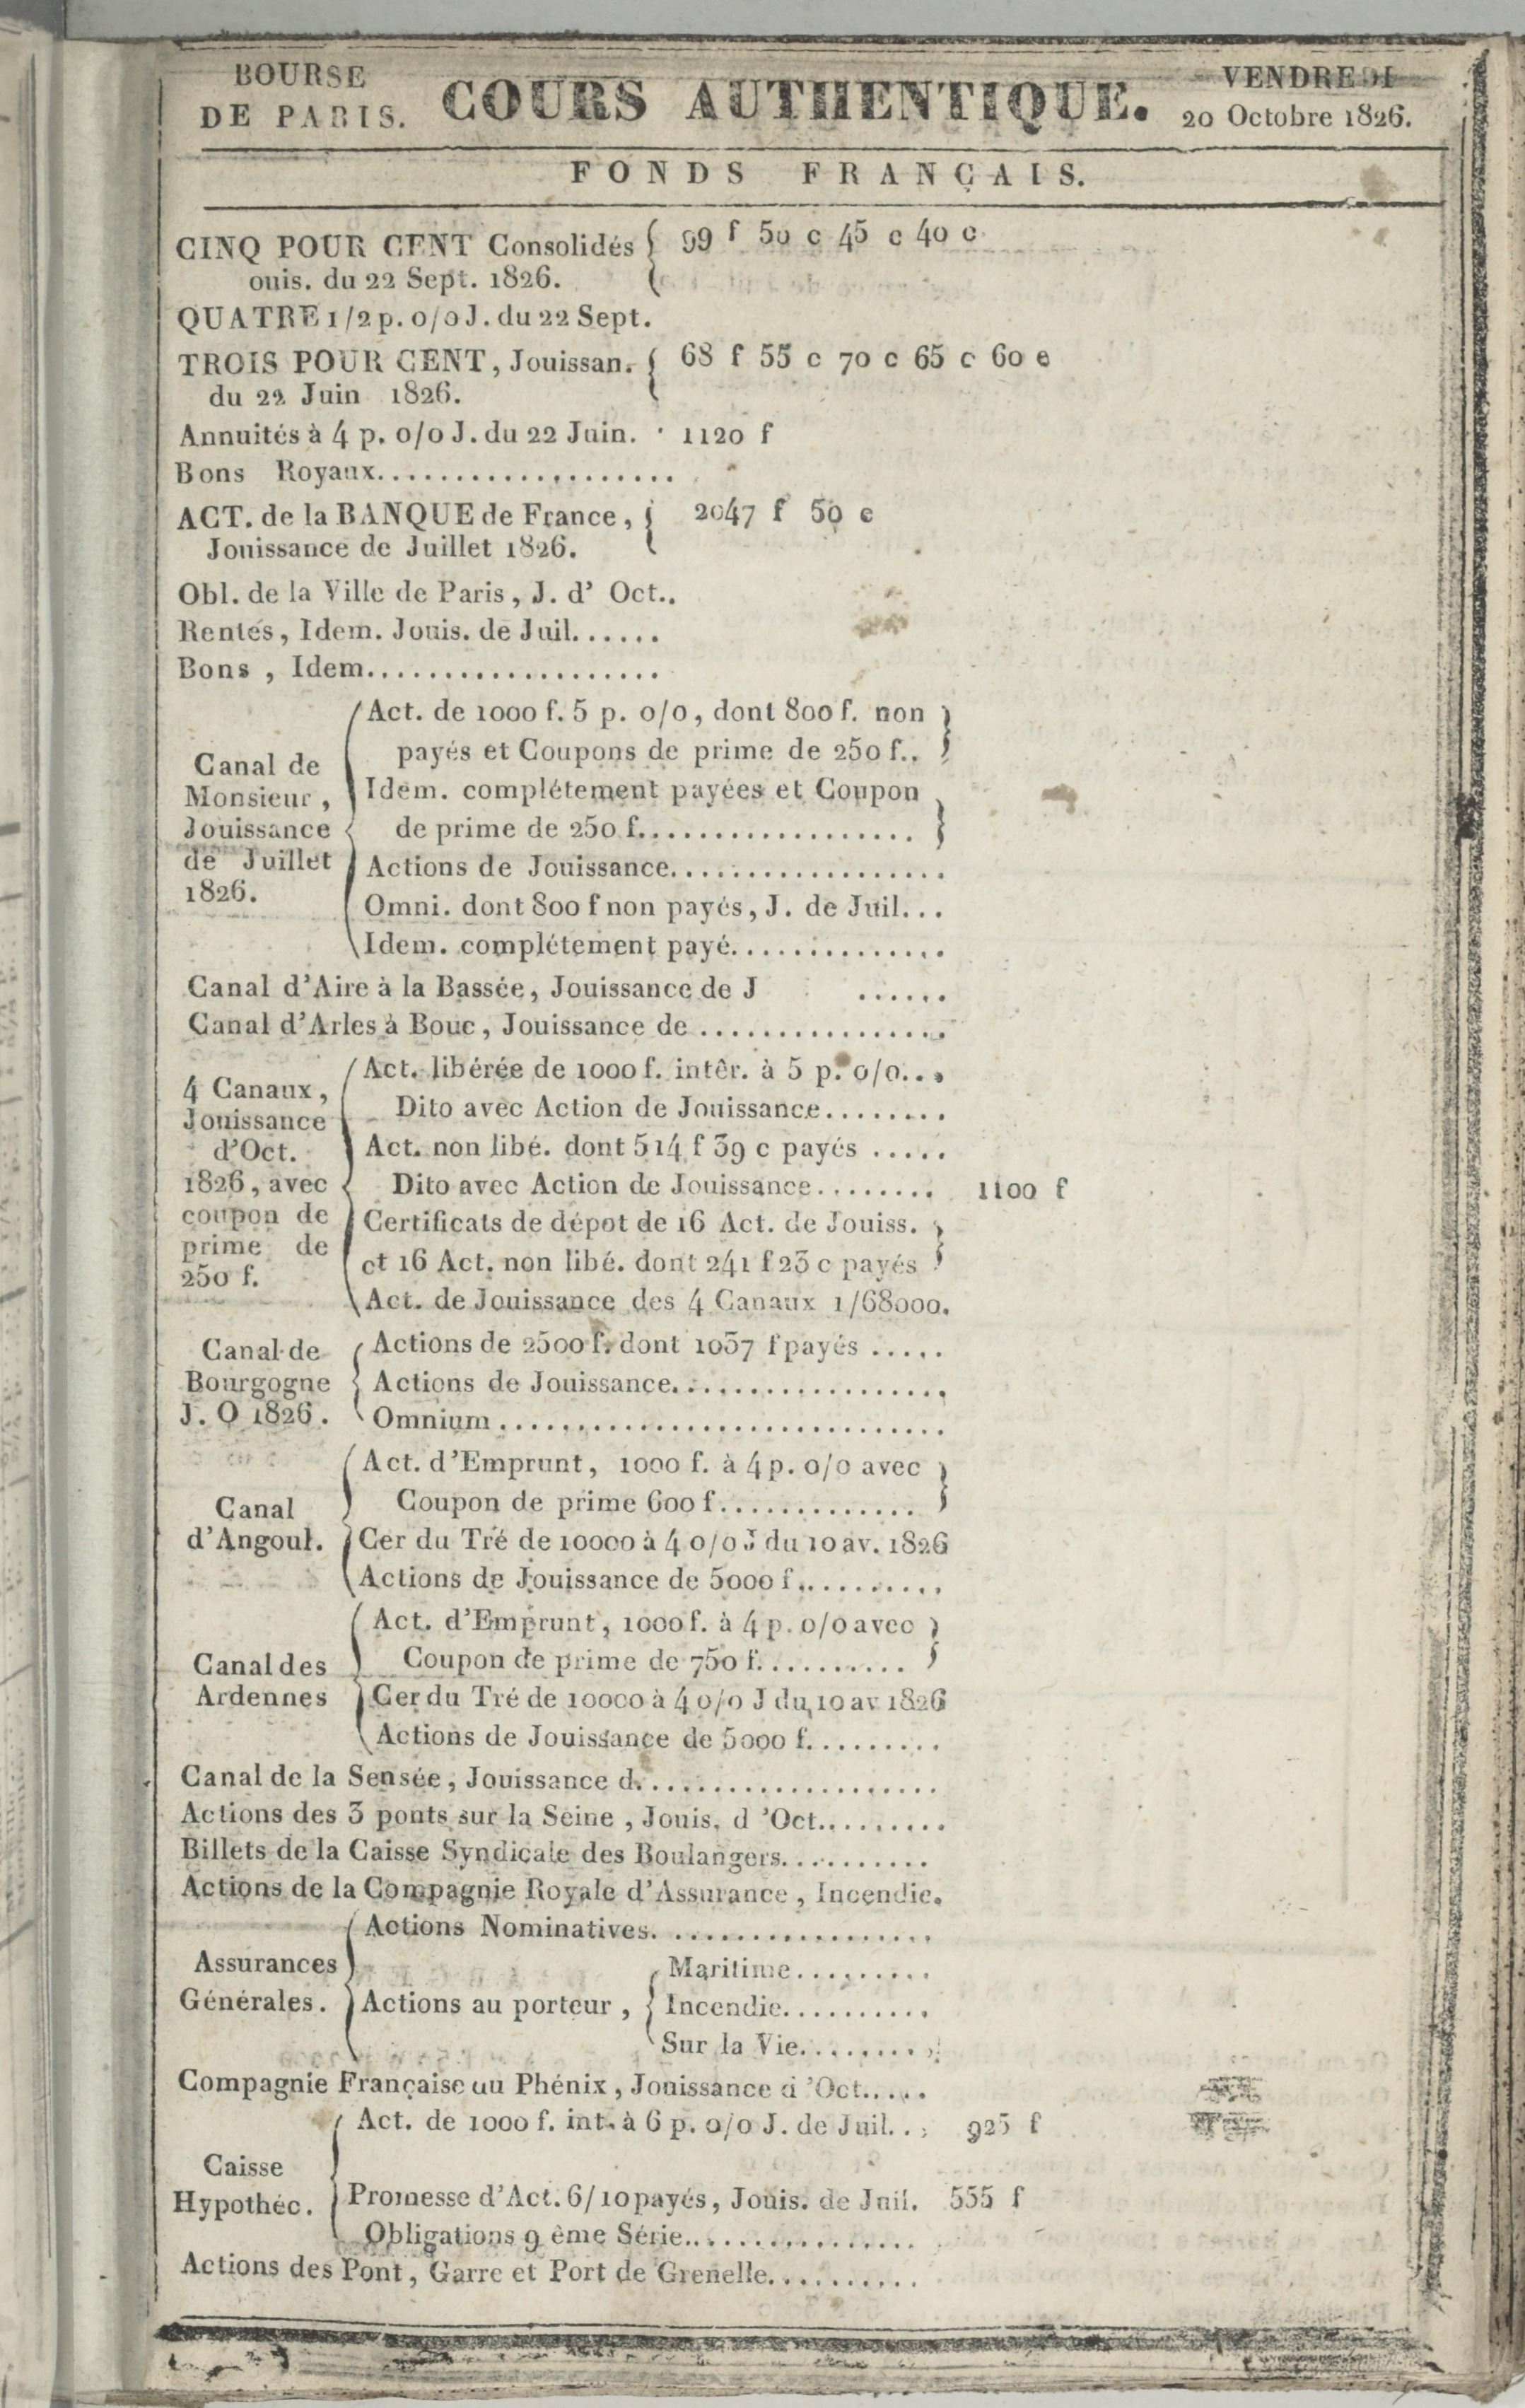 BOURSE
DE PARIS.
COURS AUTHENTIQUE.
VENDREDI
20 Octobre 1826.
FONDS FRANÇAIS.
CINQ POUR CENT Consolidés { 99 f 50 c 45 c 40 c
ouis. du 22 Sept. 1826.
QUATRE 1/2 p. 0/0 J. du 22 Sept.
TROIS POUR CENT, Jouissan. { 68 f 55 c 70 c 65 c 60 c
du 22 Juin 1826.
Annuités à 4 p. 0/0 J. du 22 Juin. 1120 f
Bons Royaux...................
ACT. de la BANQUE de France, { 2047 f 50 c
Jouissance de Juillet 1826.
Obl. de la Ville de Paris, J. d' Oct..
Rentes, Idem. Jouis. de Juil......
Bons, Idem...................
Canal de
Monsieur,
Jouissance
de Juillet
1826.
Act. de 1000 f. 5 p. 0/0, dont 800 f. non
payés et Coupons de prime de 250 f..
Idem. complétement payées et Coupon
de prime de 250 f..................
Actions de Jouissance..................
Omni. dont 800 f non payés, J. de Juil...
Idem. complétement payé..............
Canal d'Aire à la Bassée, Jouissance de J ......
Canal d'Arles à Bouc, Jouissance de ................
4 Canaux,
Jouissance
d'Oct.
1826, avec
coupon de
prime de
250 f.
Act. libérée de 1000 f. intêr. à 5 p. 0/0...
Dito avec Action de Jouissance........
Act. non libé. dont 514 f 39 c payés .....
Dito avec Action de Jouissance........ 1100 f
Certificats de dépot de 16 Act. de Jouiss.
et 16 Act. non libé. dont 241 f 23 c payés
Act. de Jouissance des 4 Canaux 1/68000.
Canal de
Bourgogne
J. O 1826.
Actions de 2500 f. dont 1037 f payés .....
Actions de Jouissance..................
Omnium.............................
Canal
d'Angoul.
Act. d'Emprunt, 1000 f. à 4 p. 0/0 avec
Coupon de prime 600 f.............
Cer du Tré de 10000 à 4 0/0 J du 10 av. 1826
Actions de Jouissance de 5000 f..........
Canal des
Ardennes
Act. d'Emprunt, 1000 f. à 4 p. 0/0 avec
Coupon de prime de 750 f..........
Cer du Tré de 10000 à 4 0/0 J du 10 av 1826
Actions de Jouissance de 5000 f.........
Canal de la Sensée, Jouissance d....................
Actions des 3 ponts sur la Seine, Jouis. d 'Oct.........
Billets de la Caisse Syndicale des Boulangers..........
Actions de la Compagnie Royale d'Assurance, Incendie.
Assurances
Générales.
Actions Nominatives..................
Actions au porteur,
Maritime.........
Incendie..........
Sur la Vie.........
Compagnie Française du Phénix, Jouissance d 'Oct.....
Caisse
Hypothéc.
Act. de 1000 f. int. à 6 p. 0/0 J. de Juil... 925 f
Promesse d'Act. 6/10 payés, Jouis. de Juil. 555 f
Obligations 9 ème Série...............
Actions des Pont, Garre et Port de Grenelle..........